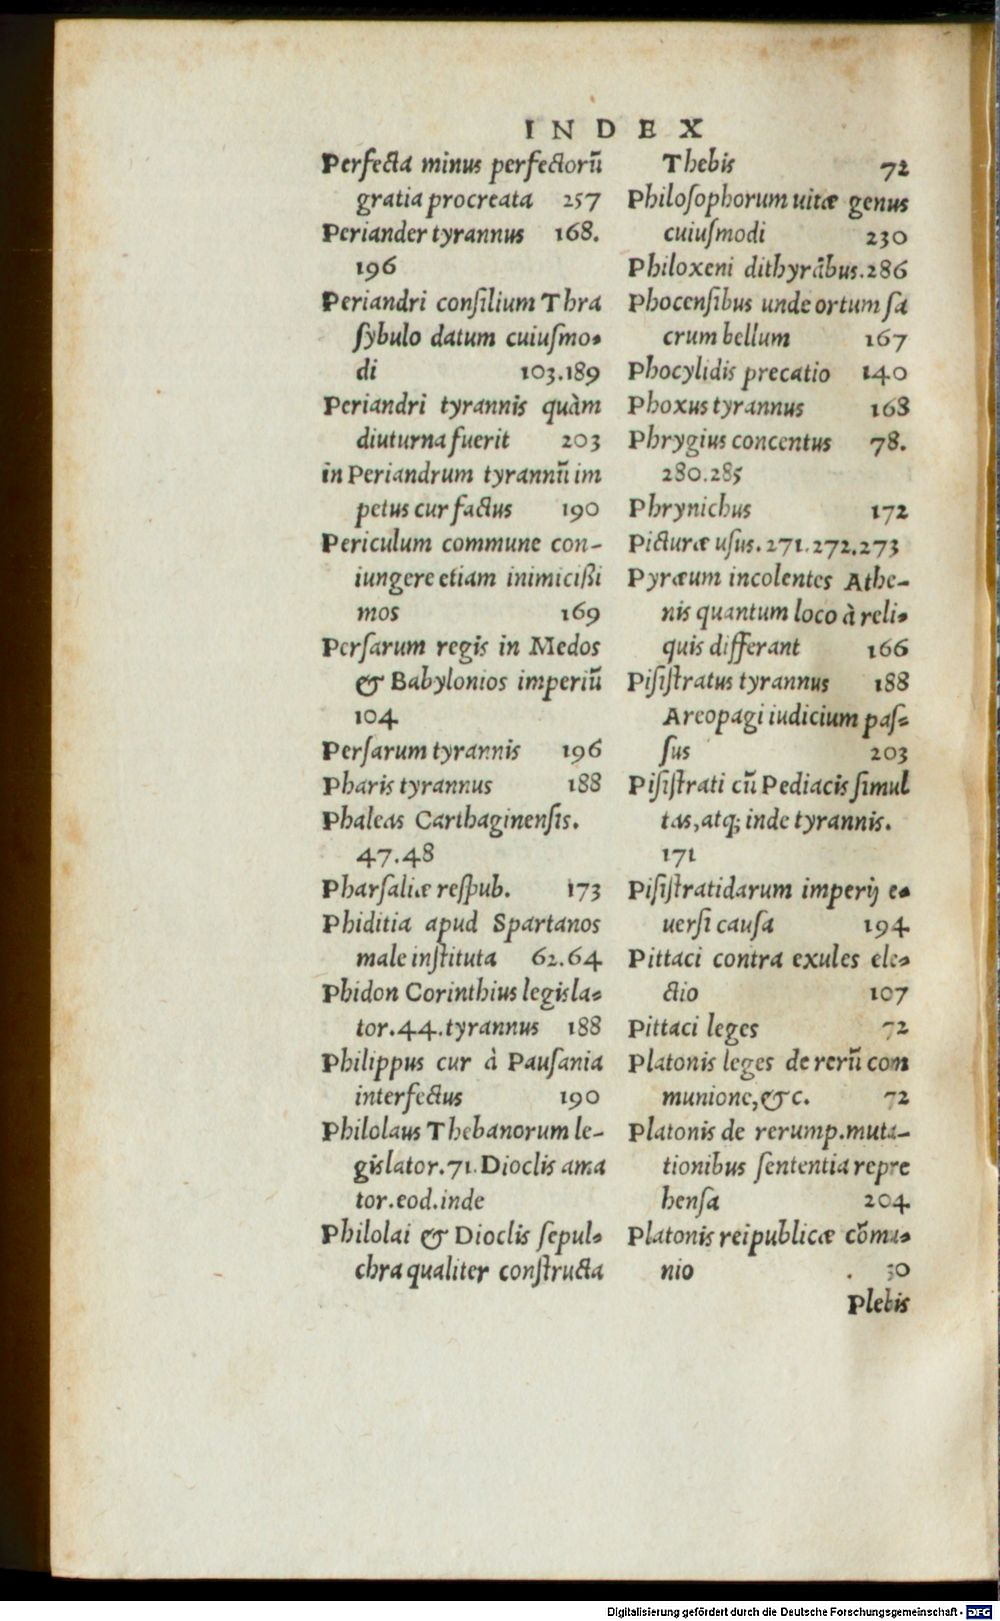 INDEX
Perfecta minus perfectorū
gratia procreata 257
Periander tyrannus 168.
196
Periandri conſilium Thra
ſybulo datum cuiuſmo-
di 103.189
Periandri tyrannis quàm
diuturna fuerit 203
in Periandrum tyrannū im
petus cur factus 190
Periculum commune con-
iungere etiam inimicißi
mos 169
Perſarum regis in Medos
& Babylonios imperiū
104
Perſarum tyrannis 196
Pharis tyrannus 188
Phaleas Carthaginenſis.
47.48
Pharſaliæ reſpub. 173
Phiditia apud Spartanos
male inſtituta 62.64
Phidon Corinthius legisla-
tor.44.tyrannus 188
Philippus cur à Pauſania
interfectus 190
Philolaus Thebanorum le-
gislator.71.Dioclis ama
tor.eod.inde
Philolai & Dioclis ſepul-
chra qualiter conſtructa
Thebis 72
Philoſophorum uitæ genus
cuiuſmodi 230
Philoxeni dithyrābus.286
Phocenſibus unde ortum ſa
crum bellum 167
Phocylidis precatio 140
Phoxus tyrannus 168
Phrygius concentus 78.
280.285
Phrynichus 172
Picturæ uſus.271.272.273
Pyræum incolentes Athe-
nis quantum loco à reli-
quis differant 166
Piſiſtratus tyrannus 188
Areopagi iudicium paſ-
ſus 203
Piſiſtrati cū Pediacis ſimul
tas, atq; inde tyrannis.
171
Piſiſtratidarum imperij e-
uerſi cauſa 194
Pittaci contra exules ele-
ctio 107
Pittaci leges 72
Platonis leges de rerū com
munione, &c. 72
Platonis de rerump.muta-
tionibus ſententia repre
henſa 204
Platonis reipublicæ cōmu-
nio 30
Plebis
Digitalisierung gefördert durch die Deutsche Forschungsgemeinschaft - DFG